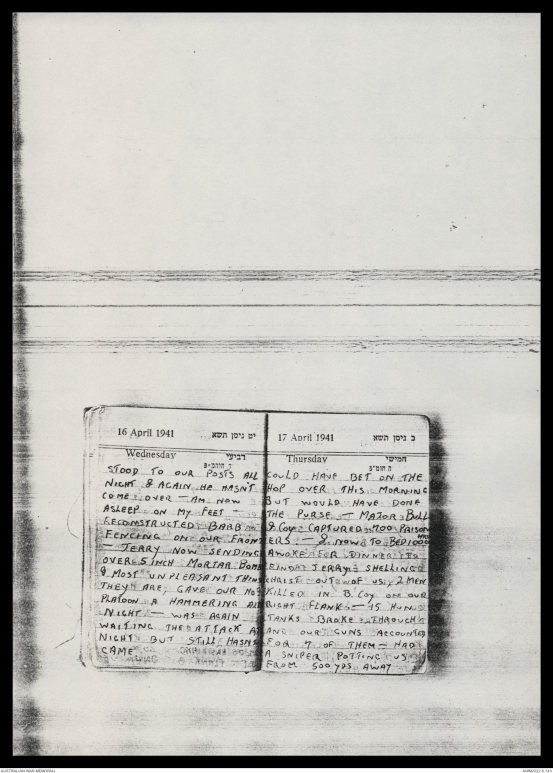 16 April 1941 יט ניסן תשא
Wednesday רביעי
ד חוהמ״פ
STOOD TO OUR POSTS ALL
NIGHT & AGAIN HE HASN'T
COME OVER — AM NOW
ASLEEP ON MY FEET —
RECONSTRUCTED BARB
FENCING ON OUR FRONT
— JERRY NOW SENDING
OVER 5 INCH MORTAR BOMBS
& MOST UNPLEASANT THINGS
THEY ARE, GAVE OUR
PLATOON A HAMMERING ALL
NIGHT — WAS AGAIN
WAITING THE ATTACK AT
NIGHT BUT STILL HASN'T
CAME
17 April 1941 כ ניסן תשא
Thursday חמישי
ה חומ״פ
COULD HAVE BET ON THE
HOP OVER THIS MORNING
BUT WOULD HAVE DONE
THE PURSE — MAJOR BALL
& COY CAPTURED 700 PRISON
ERS — & NOW TO BED 1000
HRS
AWOKE FOR DINNER TO
FIND JERRY SHELLING
CHRIST OUT OF US, 2 MEN
KILLED IN B. COY ON OUR
RIGHT FLANK — 15 HUN
TANKS BROKE THROUGH
AND OUR GUNS ACCOUNTED
FOR 7 OF THEM — HAD
A SNIPER POTTING US
FROM 500 YDS AWAY
AUSTRALIAN WAR MEMORIAL